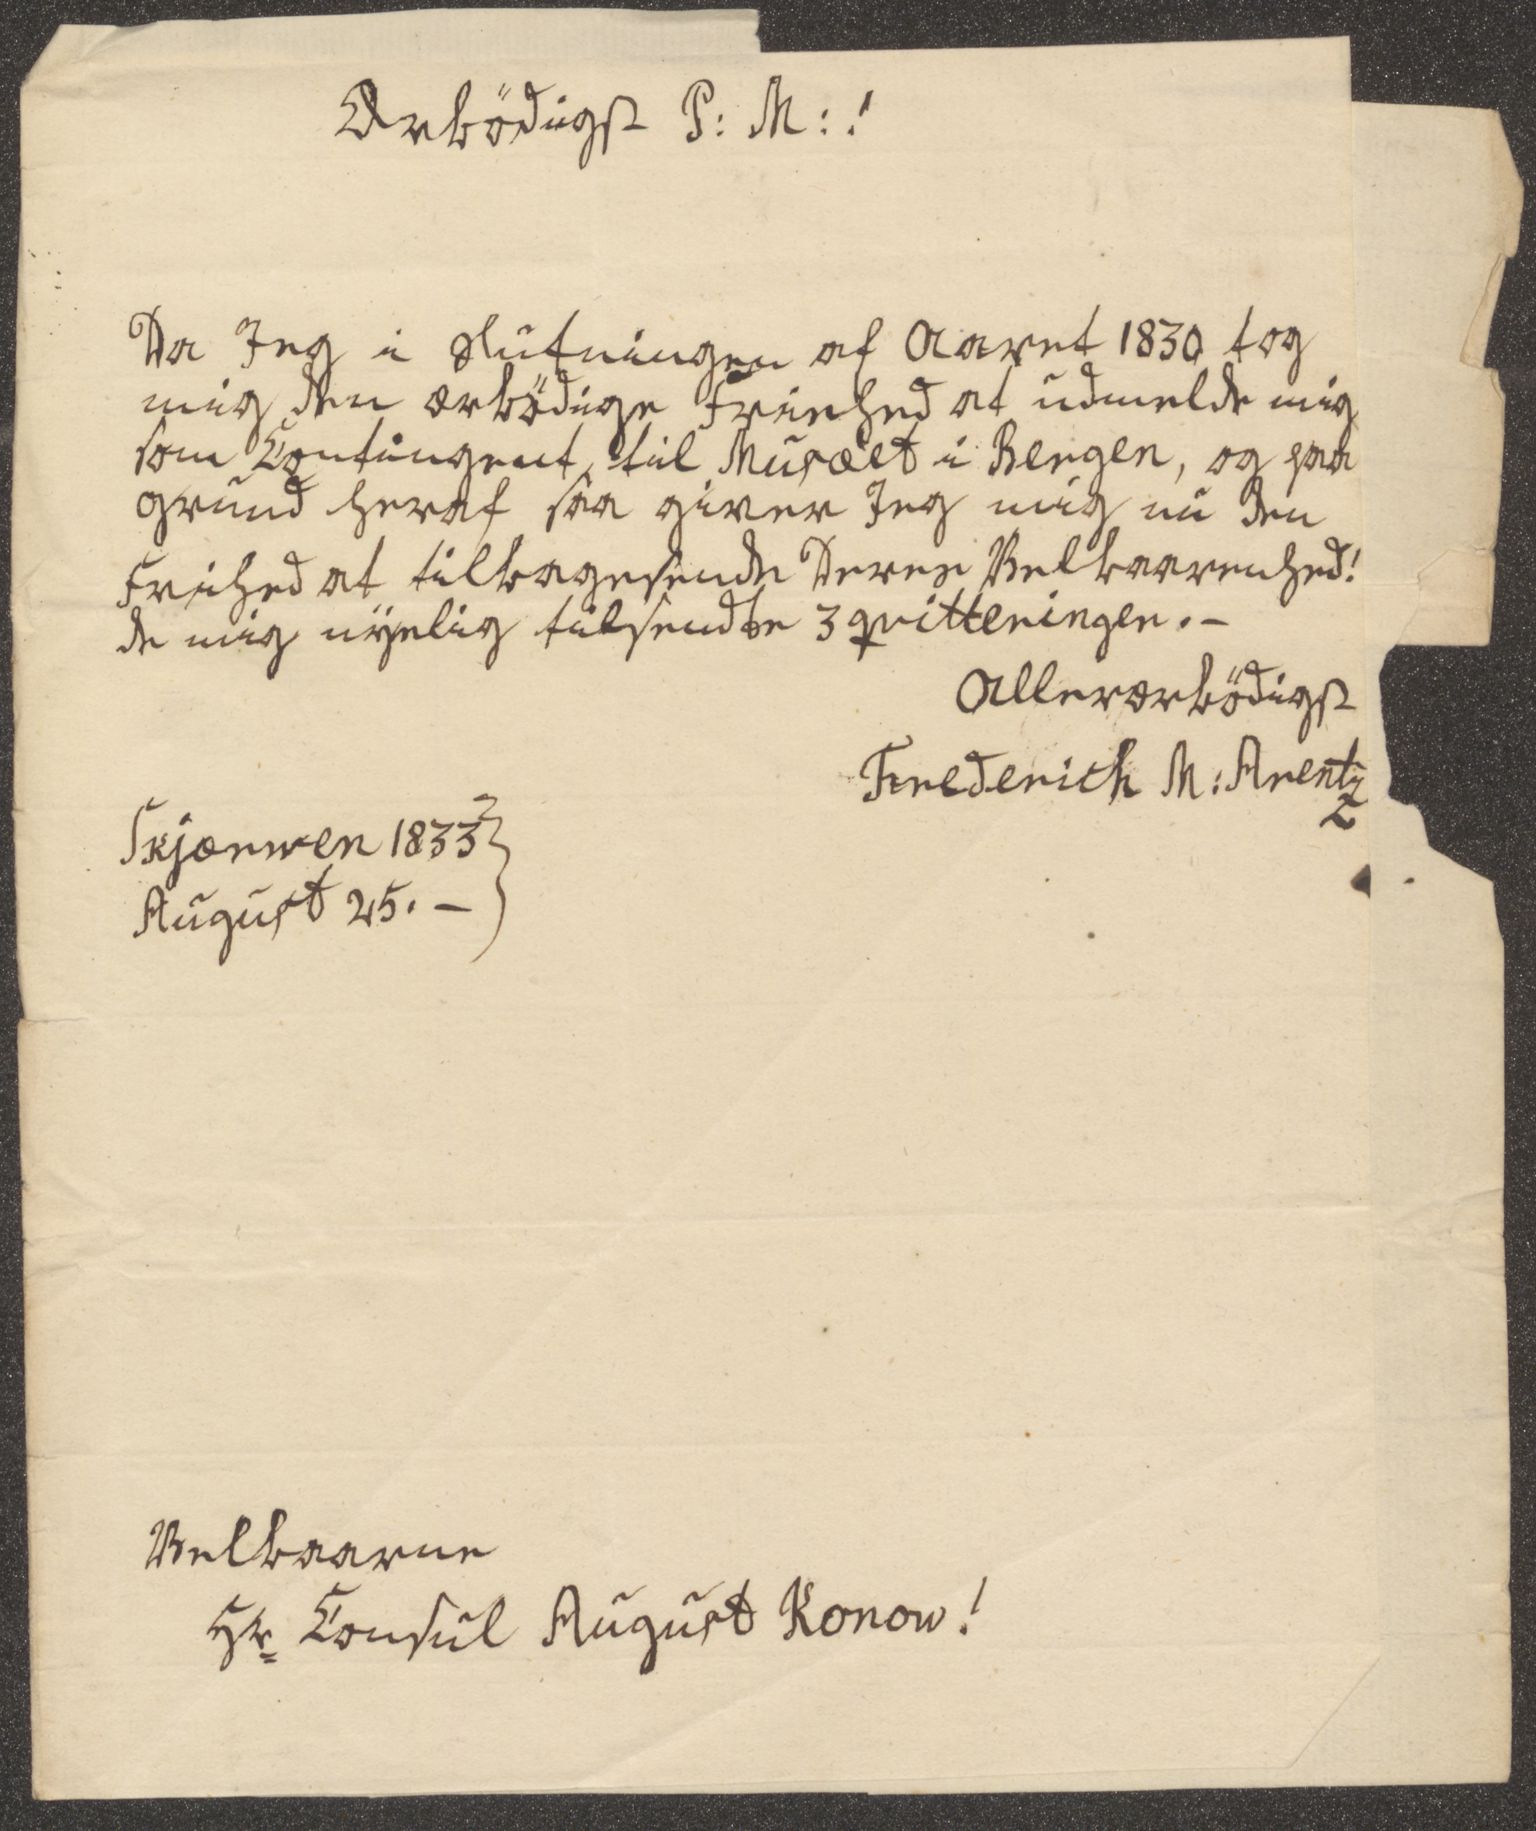 Ærbödigst P: M:!
Da Jeg i slutningen af Aaret 1830 tog
mig den ærbödige Friehed at udmelde mig
som Contingent til Musæet i Bergen, og paa
grund heraf saa giver Jeg mig nu den
Frihed at tilbagesende Deres Velbaarenhed!
de mig nÿelig tilsendte 3 qvitteringer. -
Allerærbödigst
Frederich M: Arentz
Skjærwen 1833
August 25. -
Velbaarne
Hr Consul August Konow!